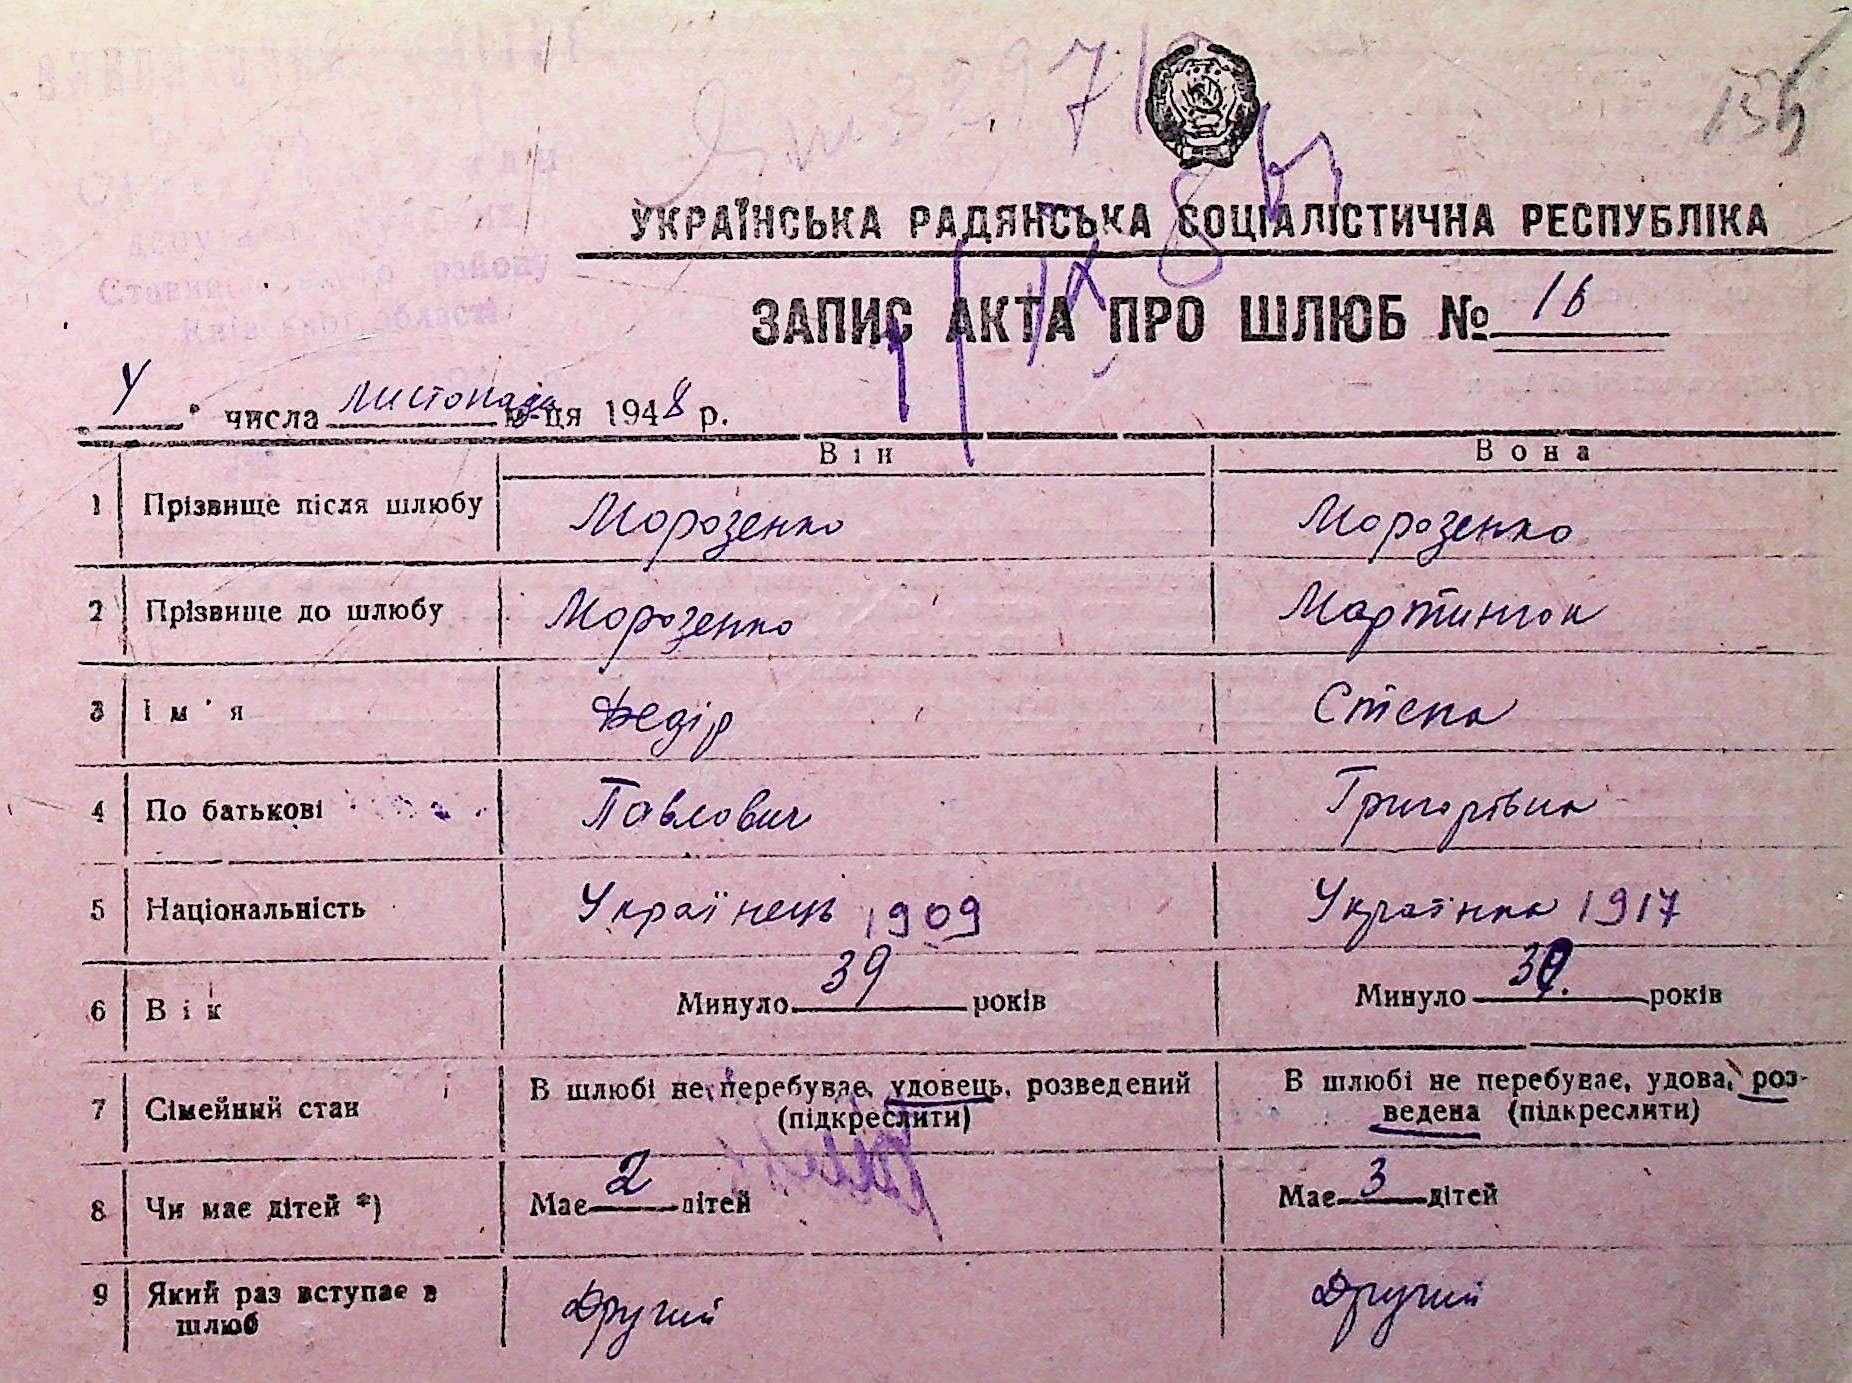 154
УКРАЇНСЬКА РАДЯНСЬКА СОЦІАЛІСТИЧНА РЕСПУБЛІКА
ЗАПИС АКТА ПРО ШЛЮБ № 16
Ставищанського району
Київської області
4 " числа листопада м-ця 1948 р.
Він Вона
1 Прізвище після шлюбу Морозенко Морозенко
2 Прізвище до шлюбу Морозенко Мартинюк
3 Ім'я Федір Степа
4 По батькові Павлович Григорівна
5 Національність Українець 1909 Українка 1917
6 Вік Минуло 39 років Минуло років
7 Сімейний стан В шлюбі не перебуває, удовець, розведений В шлюбі не перебуває, удова, роз-
(підкреслити) ведена (підкреслити)
8 Чи має дітей *) Має 2 дітей Має 3 дітей
9 Який раз вступає в Другий Другий
шлюб